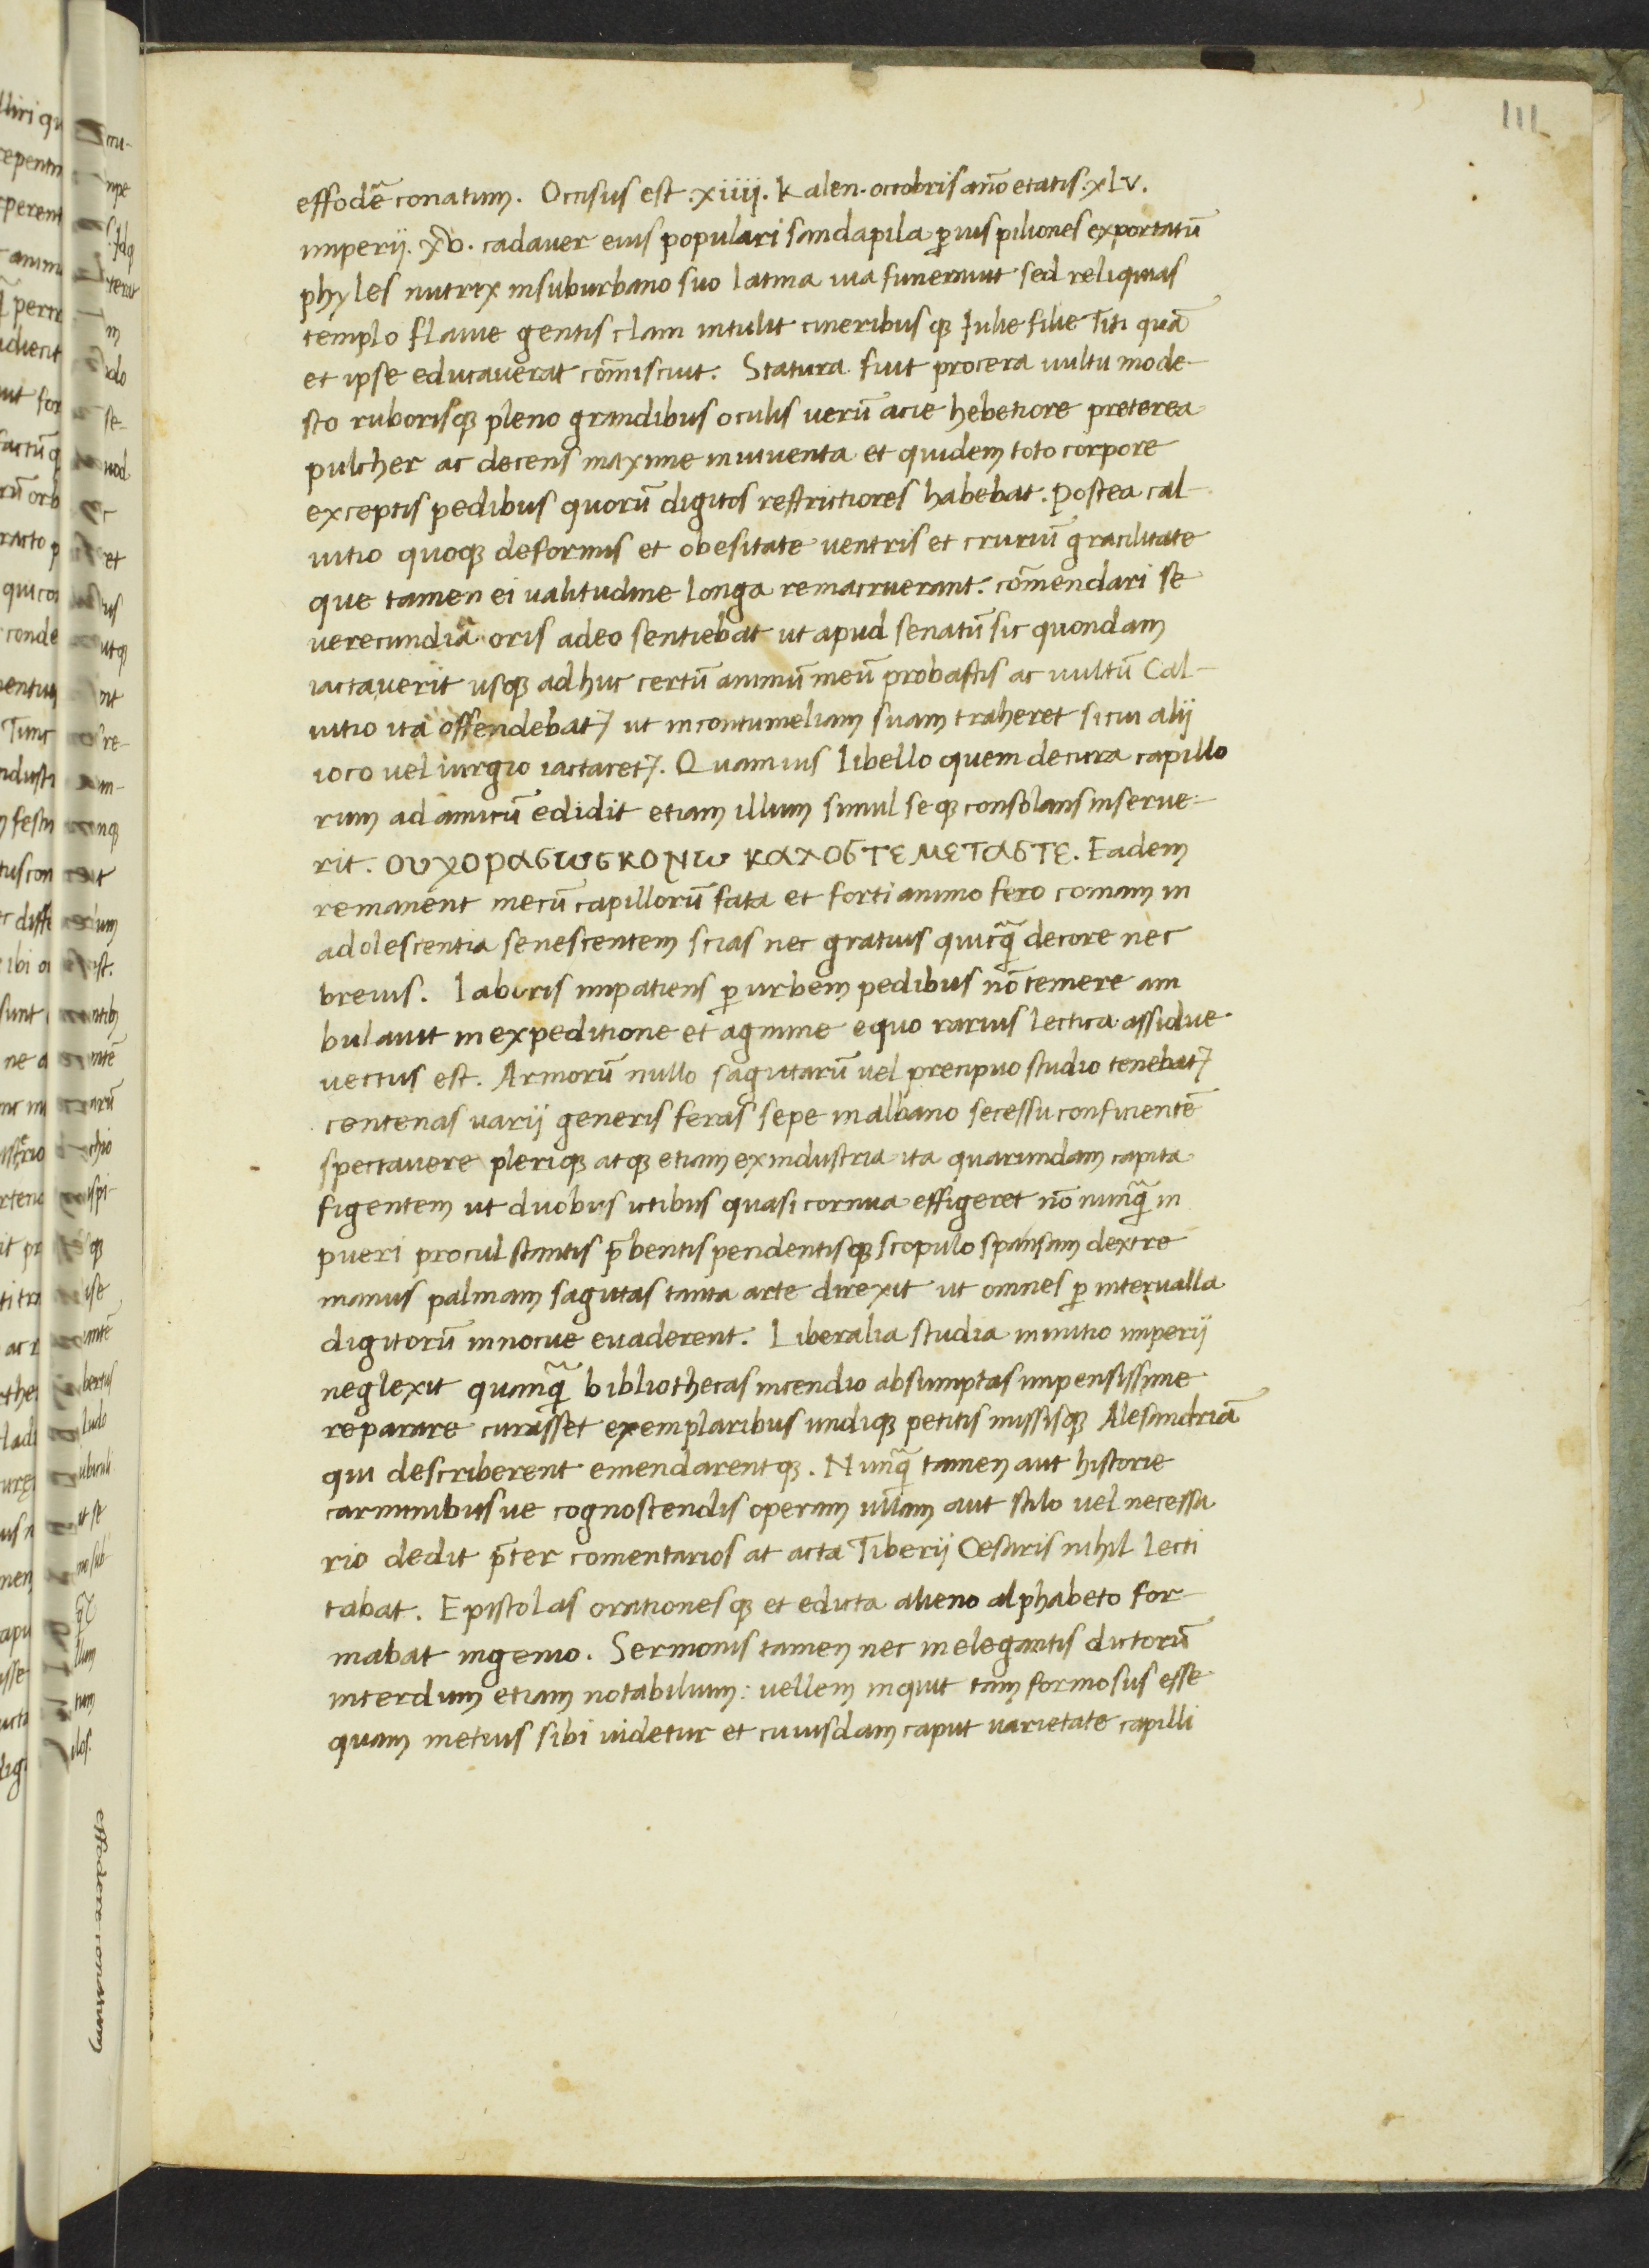 111
effodẽ conatum. Occisus est .xiiij. Kalen. octobris año etatis .xLv.
imperij. xv. cadaver eius populari sandapila ꝑ uispiliones exportatũ
phyles nutrix in suburbano suo latina uia funeravit sed reliquias
templo flavie gentis clam intulit cineribusqꝫ Iulie filie Titi quã
et ipse educaverat cõmiscuit. Statura fuit procera uultu mode-
sto ruborisqꝫ pleno grandibus oculis uerũ acie hebetiore preterea
pulcher ac decens maxime in iuventa et quidem toto corpore
exceptis pedibus quorũ digitos restrictiores habebat. Postea cal-
uitio quoqꝫ deformis et obesitate ventris et crurũ gracilitate
que tamen ei valitudine longa remacruerant. cõmendari se
verecundiã oris adeo sentiebat ut apud senatũ sic quondam
iactaverit usqꝫ adhuc certũ animũ meũ probastis ac uultũ Cal-
uitio ita offendebat⁊ ut in contumeliam suam traheret si cui alij
ioco vel iurgio iactaret⁊. Quamuis libello quem de cura capillo
rum ad amicũ edidit etiam illum simul seqꝫ consolans inserue-
rit. ουχοραϭωϭκονω καχοϭτεμεταϭτε. Eadem
remanent mecũ capillorũ fata et forti animo fero comam in
adolescentia senescentem scias nec gratius quicq̃ decore nec
brevius. Laboris impatiens ꝑ urbem pedibus nõ temere am
bulavit in expeditione et agmine equo rarius lectica assidue
vectus est. Armorũ nullo sagittarũ vel precipuo studio tenebat⁊
centenas varij generis feras sepe in albano secessu conficientẽ
spectavere pleriqꝫ atqꝫ etiam ex industria ita quarundam capita
figentem ut duobus ictibus quasi cornua effigeret nõ nunq̃ in
pueri procul stantis p̃bentis pendentisqꝫ scopulo spansam dextre
manus palmam sagittas tanta arte direxit ut omnes ꝑ intervalla
digitorũ innocue evaderent. Liberalia studia in initio imperij
neglexit quamq̃ bibliothecas incendio absumptas impensissime
reparare curasset exemplaribus undiqꝫ petitis missisqꝫ Alesandriã
qui describerent emendarentqꝫ. Nunq̃ tamen aut historie
carminibusue cognoscendis operam ullam aut stilo vel necessa
rio dedit p̃ter comentarios at acta Tiberij Cesaris nihil lecti
tabat. Epistolas orationesqꝫ et edicta alieno alphabeto for-
mabat ingenio. Sermonis tamen nec inelegantis dictorũ
interdum etiam notabilium: vellem inquit tam formosus esse
quam metius sibi videtur et cuiusdam caput varietate capilli
effodere conatum